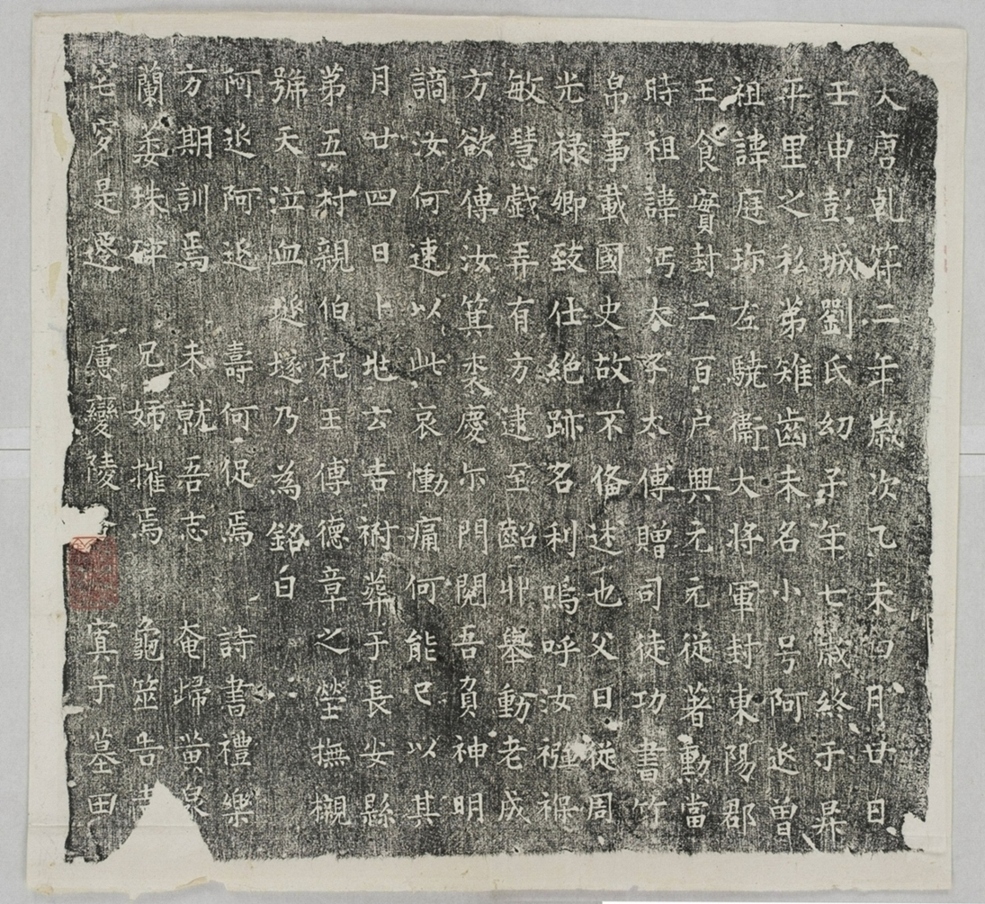 大唐乾符二年歲次乙未四月廿日
壬申彭城劉氏幼子年七歲終于昇
平里之私弟雉齒未名小号阿延曾
祖諱庭珎左驍衛大将軍封東陽郡
王食實封二百户興元元從著勳當
時祖諱沔太子太傅贈司徒功書竹
帛事載國史故不俻述也父曰從周
光祿卿致仕絶跡名利嗚呼汝襁褓
敏慧戲弄有方逮至齠丱舉動老成
方欲傳汝箕裘慶尒門閥吾負神明
謫汝何速以此哀慟痛何能已以其
月廿四日卜地云吉祔葬于長安縣
第五村親伯杞王傅德章之塋撫櫬
號天泣血埏埏乃為銘曰
阿延阿延 壽何促焉 詩書禮樂
方期訓焉 未就吾志 奄歸黄泉
蘭萎珠碎 兄姊摧焉 龜筮告
宅穸是遷 慮變陵谷 寘于墓田